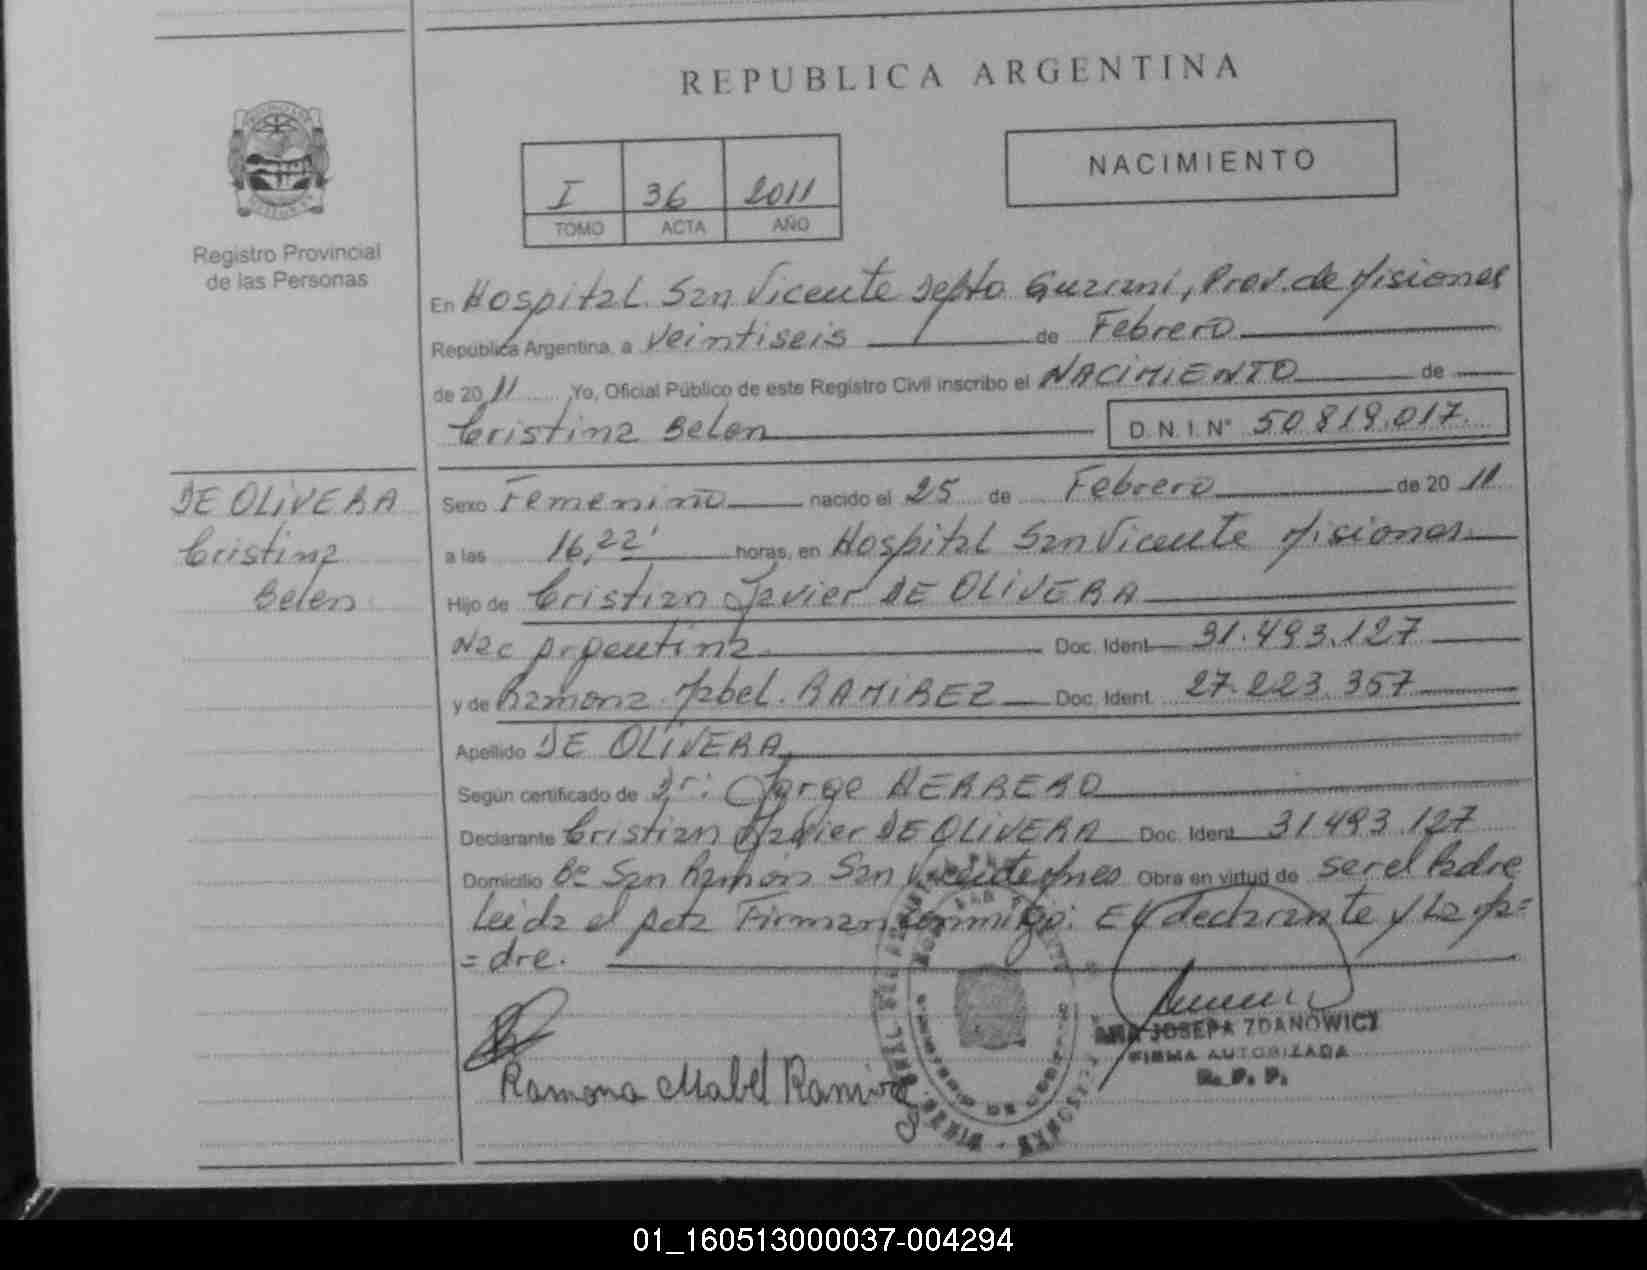 REPUBLICA ARGENTINA
NACIMIENTO
I 36 2011
TOMO ACTA AÑO
Registro Provincial
de las Personas
En Hospital San Vicente Depto Guarani, Prov. de Misiones
República Argentina, a Veintiseis de Febrero
de 20 11 Yo, Oficial Público de este Registro Civil inscribo el NACIMIENTO de
Cristina Belen D.N.I. N° 50.819.017.
DE OLIVERA
Cristina
Belen
Sexo Femenino nacido el 25 de Febrero de 20 11
a las 16,22' horas, en Hospital San Vicente Misiones
Hijo de Cristian Javier DE OLIVERA
Nac Argentina Doc. Ident 31.493.127
y de Ramona Mabel RAMIREZ Doc. Ident. 27.223.357
Apellido DE OLIVERA
Según certificado de Dr: Jorge HERRERO
Declarante Cristian Javier DE OLIVERA Doc. Ident. 31.493.127
Domicilio Bº San Ramón San Vicente Mnes Obra en virtud de ser el Padre
Leida el Acta Firman conmigo: El declarante y La Ma=
=dre.
JOSEFA ZDANOWICZ
FIRMA AUTORIZADA
R. P. P.
Ramona Mabel Ramirez
MISIONES
01_160513000037-004294